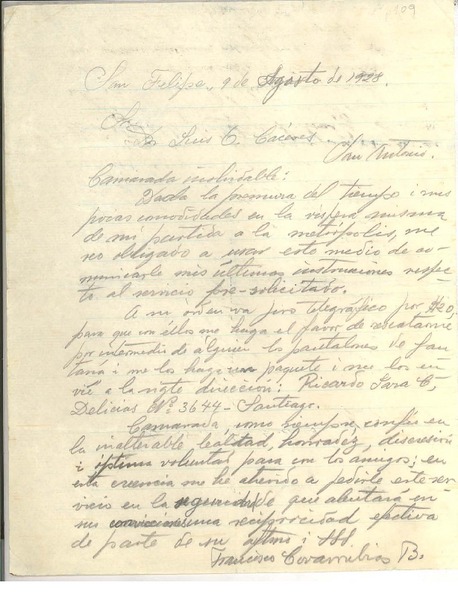 109
San Felipe, 9 de Agosto de 1928.
Sr.
Dn Luis C. Cáceres.
San Antonio.
Camarada inolvidable:
Dada la premura del tiempo i mis
pocas comodidades en la víspera misma
de mi partida a la metrópolis, me
veo obligado a usar este medio de co-
municarle mis últimas instrucciones respec-
to al servicio pre-solicitado.
A su orden va jiro telegráfico por $20.-
para que con ellos me haga el favor de rescatarme
por intermedio de alguien los pantalones de fan-
tasía i me los haga un paquete i me los en-
víe a la sgte dirección: Ricardo Lara C.
Delicias Nº 3644 - Santiago.
Camarada, como siempre, confío en
la inalterable lealtad, honradez, discresión
i óptima voluntad para con los amigos; en
esta creencia me he atrevido a pedirle este ser-
vicio en la seguridad de que alentará en
sus convicciones una reciprocidad efectiva
de parte de su afmo i SSS.
Francisco Covarrubias B.